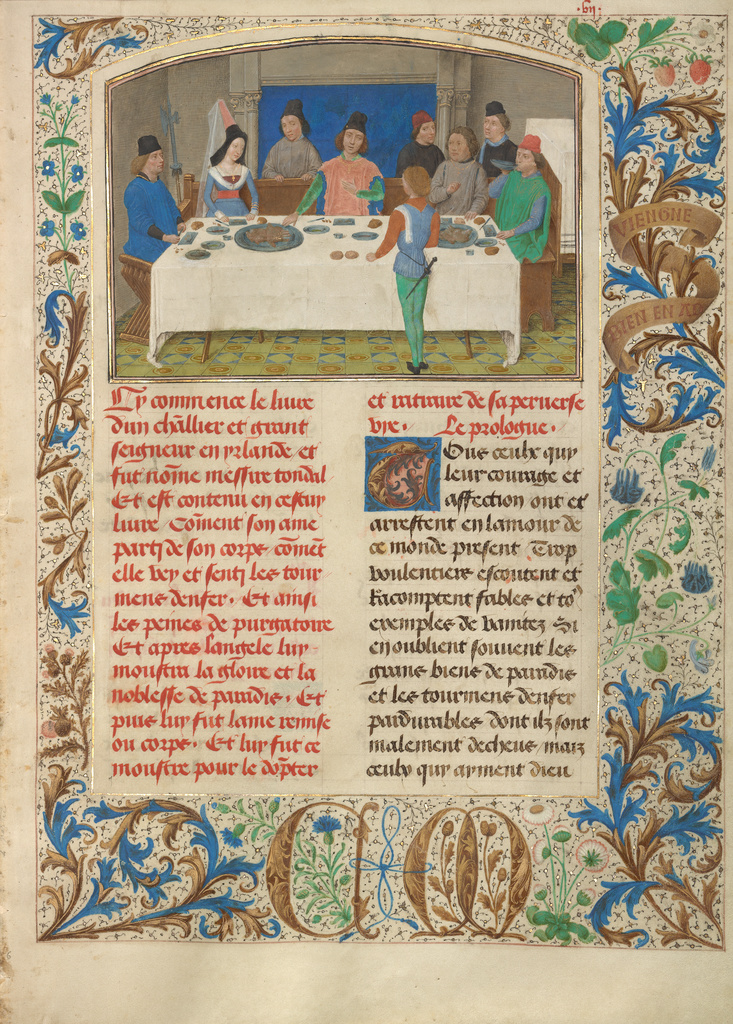 Cy commence le livre
dun chlliier et grant
seigneur en yrlande et
fut nome messire tondal
Et est contenu en cestuy
livre Coment son ame
parti de son corps comet
elle vey et senti les tour
mens denfer. Et ainsi
les peines de purgatoire
Et apres langele luy
monstra la gloire et la
noblesse de paradis. Et
puis luy fut lame remise
ou corps. Et luy fut ce
monstre pour le dopter
et retraire de sa perverse
vie. Le prologue.
Tous ceulx quy
leur courage et
affection ont et
arrestent en lamour de
ce monde present Trop
voulentiers escoutent et
Racomptent fables et to9
exemples de vanitez Si
en oublient souvent les
grans biens de paradis
et les tourmens denfer
pardurables dont ilz sont
malement decheus mais
ceulx quy ayment dieu
VIENGNE
BIEN EN A
C M